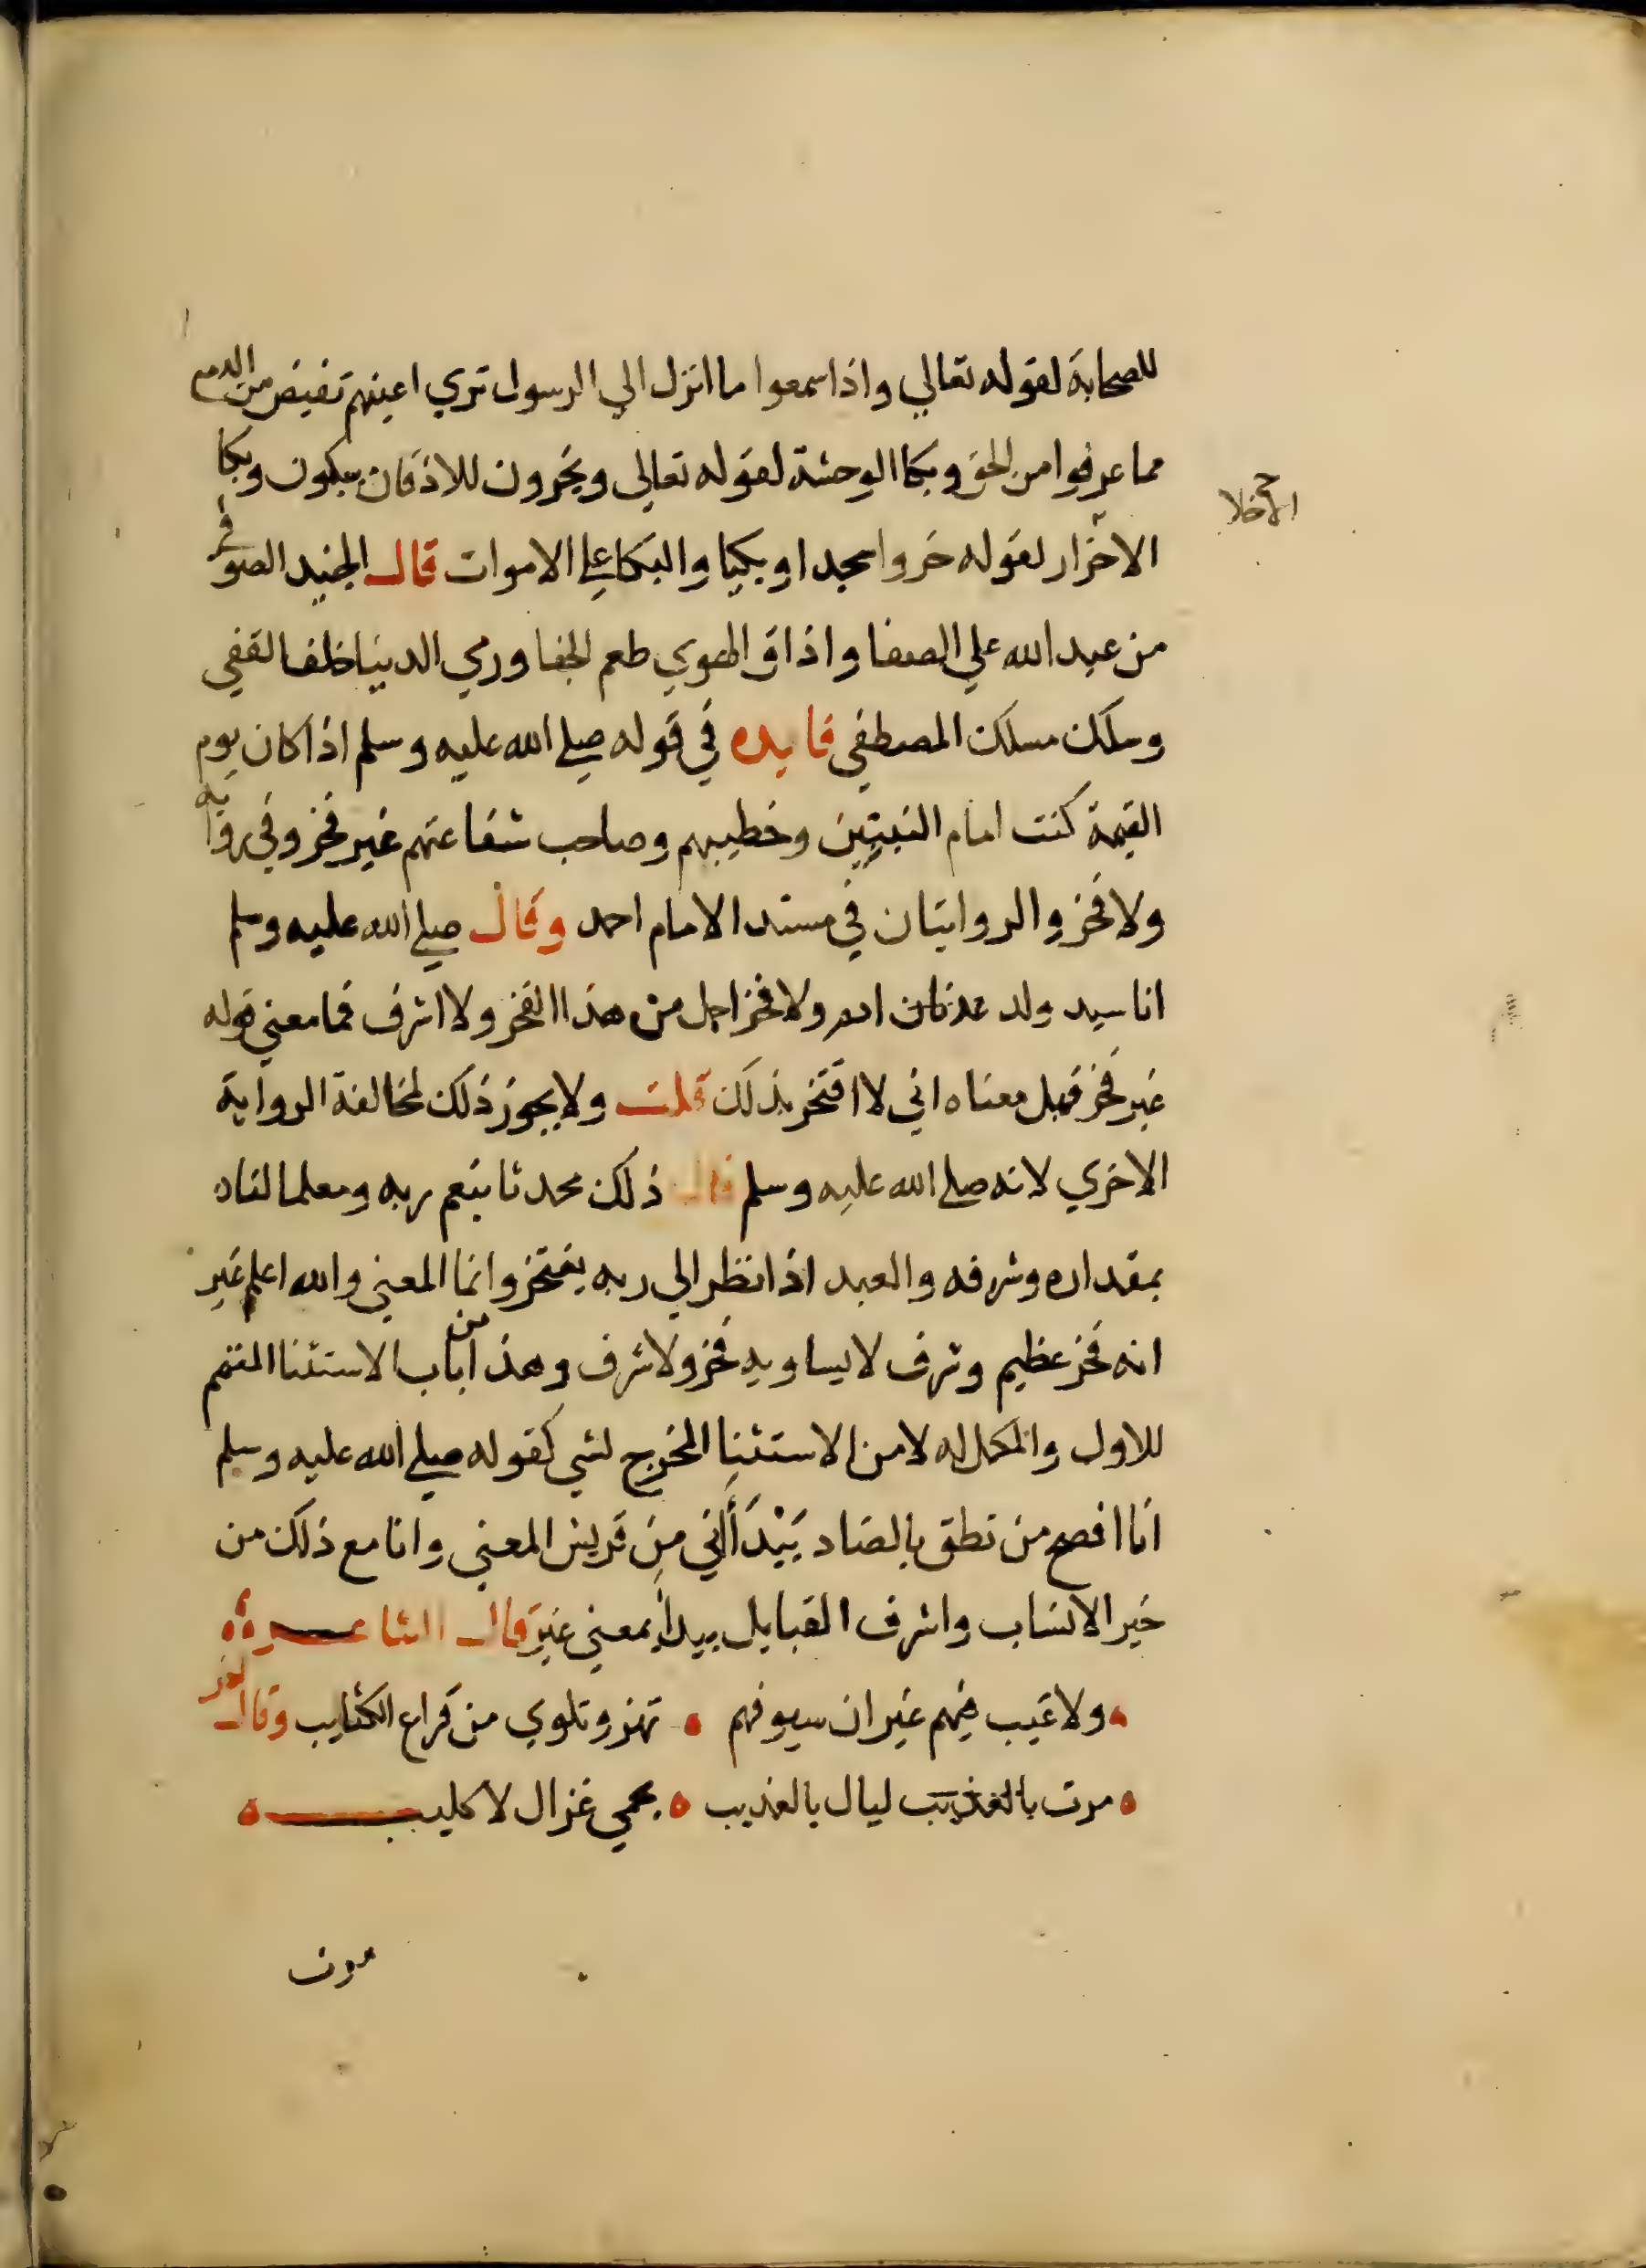 للصحابة لقوله تعالي واذا سمعوا ما انزل الي الرسول تري اعينهم تفيض من الدمع
مما عرفوا من الحق وبكا الوحشة لقوله تعالي ويخرون للاذقان يبكون وبكا
الاخلا
الاحزار لقوله خروا سجدا وبكيا والبكا علي الاموات قال الجنيد الصوفي
من عبد الله علي الصفا واذاق الهوي طعم الجفا ورمي الدنيا خلف القفي
وسلك مسلك المصطفي فايده في قوله صلي الله عليه وسلم اذا كان يوم
القيمة كنت امام النبيين وخطيبهم وصاحب شفاعتهم غير فخر وفي رواية
ولا فخر والروايتان في مسند الامام احمد وقال صلي الله عليه وسلم
انا سيد ولد عدنان ادم ولا فخر اجل من هذا الفخر ولا اشرف فما معني قوله
غير فخر فقيل معناه اني لا افتخر بذلك قلت ولا يجوز ذلك لمخالفة الرواية
الاخري لانه صلي الله عليه وسلم قال ذلك محدثا بنعم ربه ومعلما لناه
بمقداره وشرفه والعبد اذا نظر الي ربه يفتخر وانما المعني والله اعلم غير
انه فخر عظيم وشرف لا يساويه فخر ولا شرف وهذا من باب الاستثنا المتمم
للاول والمكمل له لا من الاستثنا المخرج لشي كقوله صلي الله عليه وسلم
انا افصح من نطق بالضاد بَيْدَ أَني من قريش المعني وانا مع ذلك من
خير الانساب واشرف القبايل بيد أني بمعني غير قال الشاعر
ولا عيب فيهم غير ان سيوفهم تهز وتلوي من قراع الكتايب وقال اخر
مرت بالعذيب ليال بالعذيب بحمي غزال لا كليب
مرت